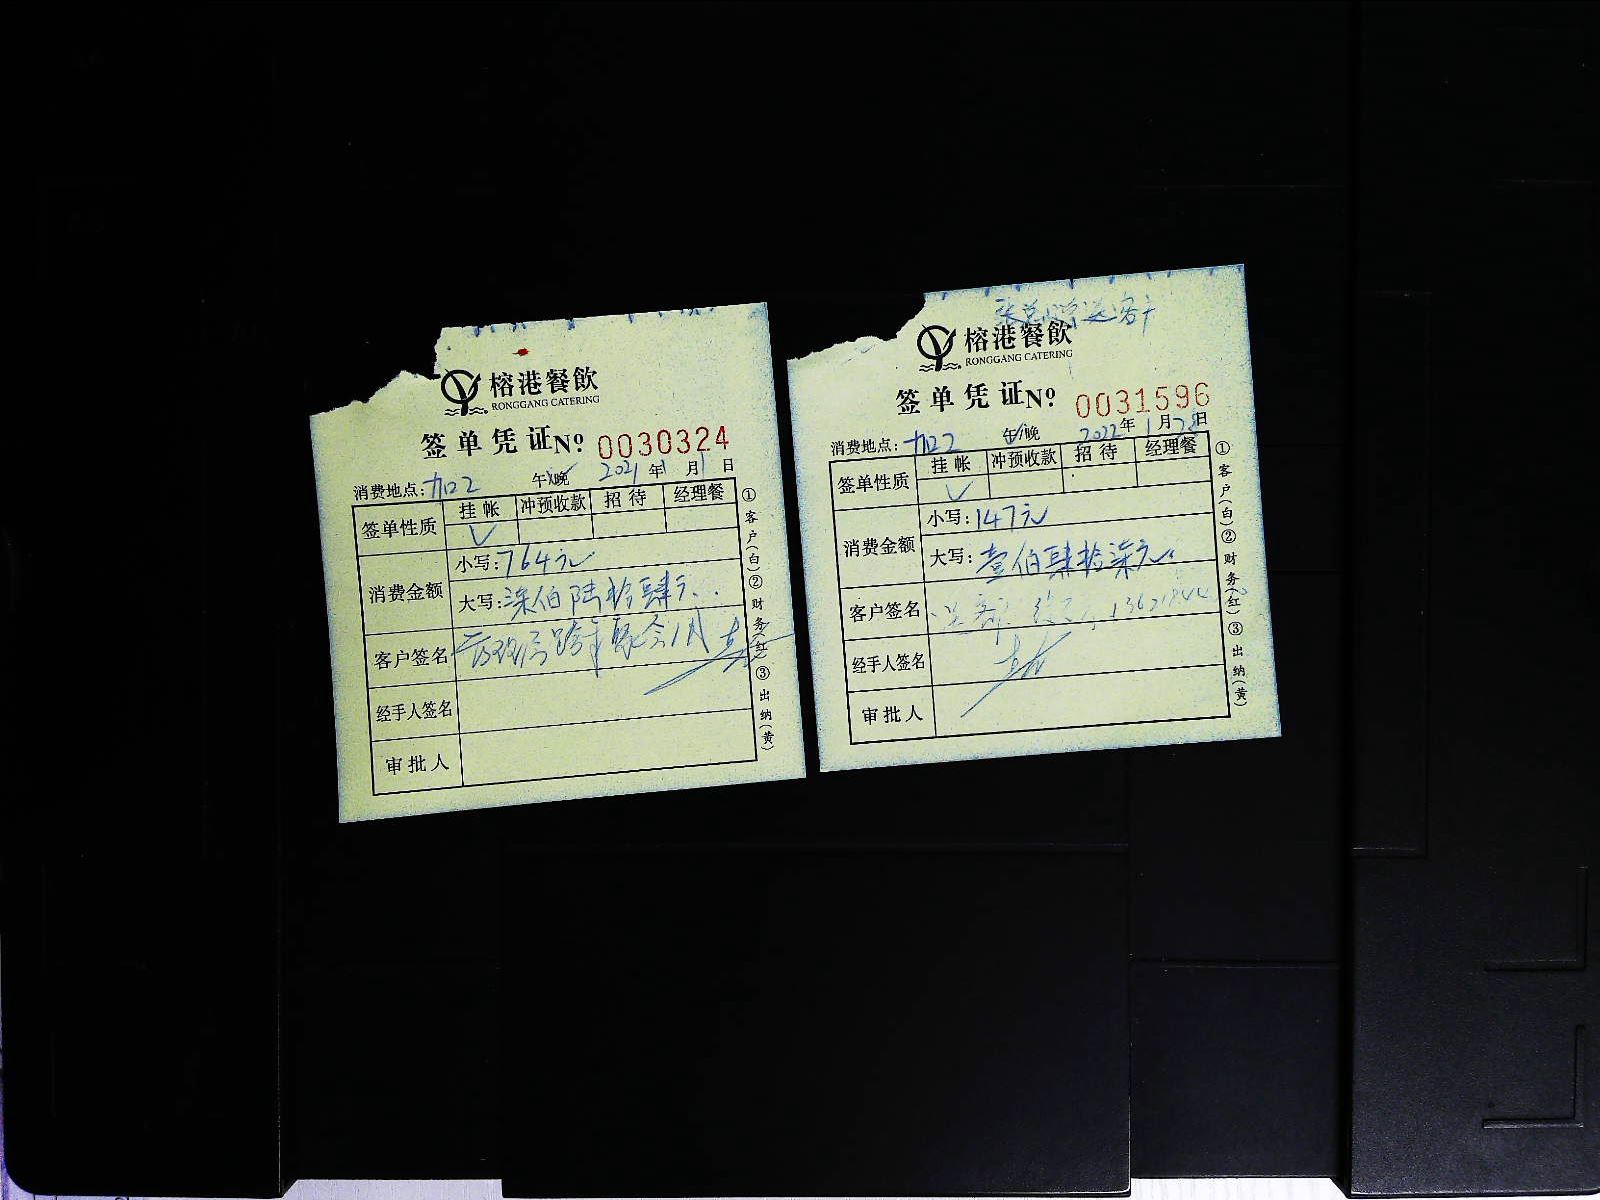 榕港餐飲
RONGGANG CATERING
签单凭证 Nº 0030324
消费地点: 午/晚 2021年1月1日
签单性质 挂帐 冲预收款 招待 经理餐
√
消费金额 小写: 764元
大写: 柒佰陆拾肆元
客户签名
经手人签名
审批人
①客户(白)②财务(红)③出纳(黄)
送客户
榕港餐飲
RONGGANG CATERING
签单凭证 Nº 0031596
消费地点: 午/晚 2022年1月28日
签单性质 挂帐 冲预收款 招待 经理餐
√
消费金额 小写: 147元
大写: 壹佰肆拾柒元
客户签名
经手人签名
审批人
①客户(白)②财务(红)③出纳(黄)